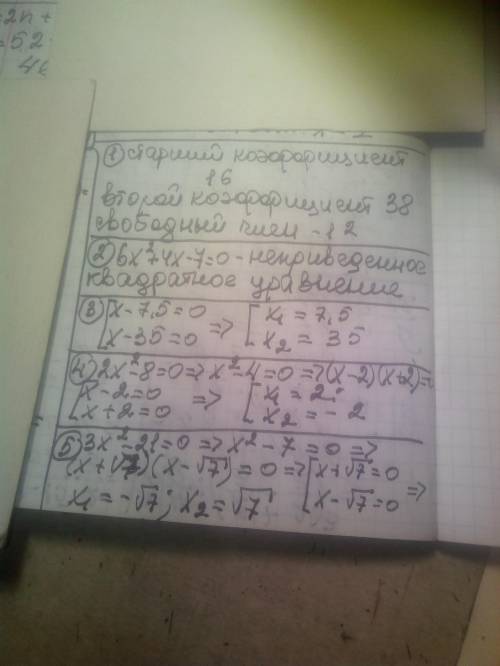 =2n+
=52
46
① старший коэффициент
16
второй коэффициент 38
свободный член -12
② 6x²+4x-7=0 - неприведенное
квадратное уравнение
③ [x-7,5=0 => [x₁=7,5
x-35=0 x₂=35
④ 2x²-8=0=>x²-4=0=>(x-2)(x+2)=0
[x-2=0 => [x₁=2;
x+2=0 x₂=-2
⑤ 3x²-21=0=>x²-7=0=>
(x+√7)(x-√7)=0=>[x+√7=0
x-√7=0 =>
x₁=-√7; x₂=√7